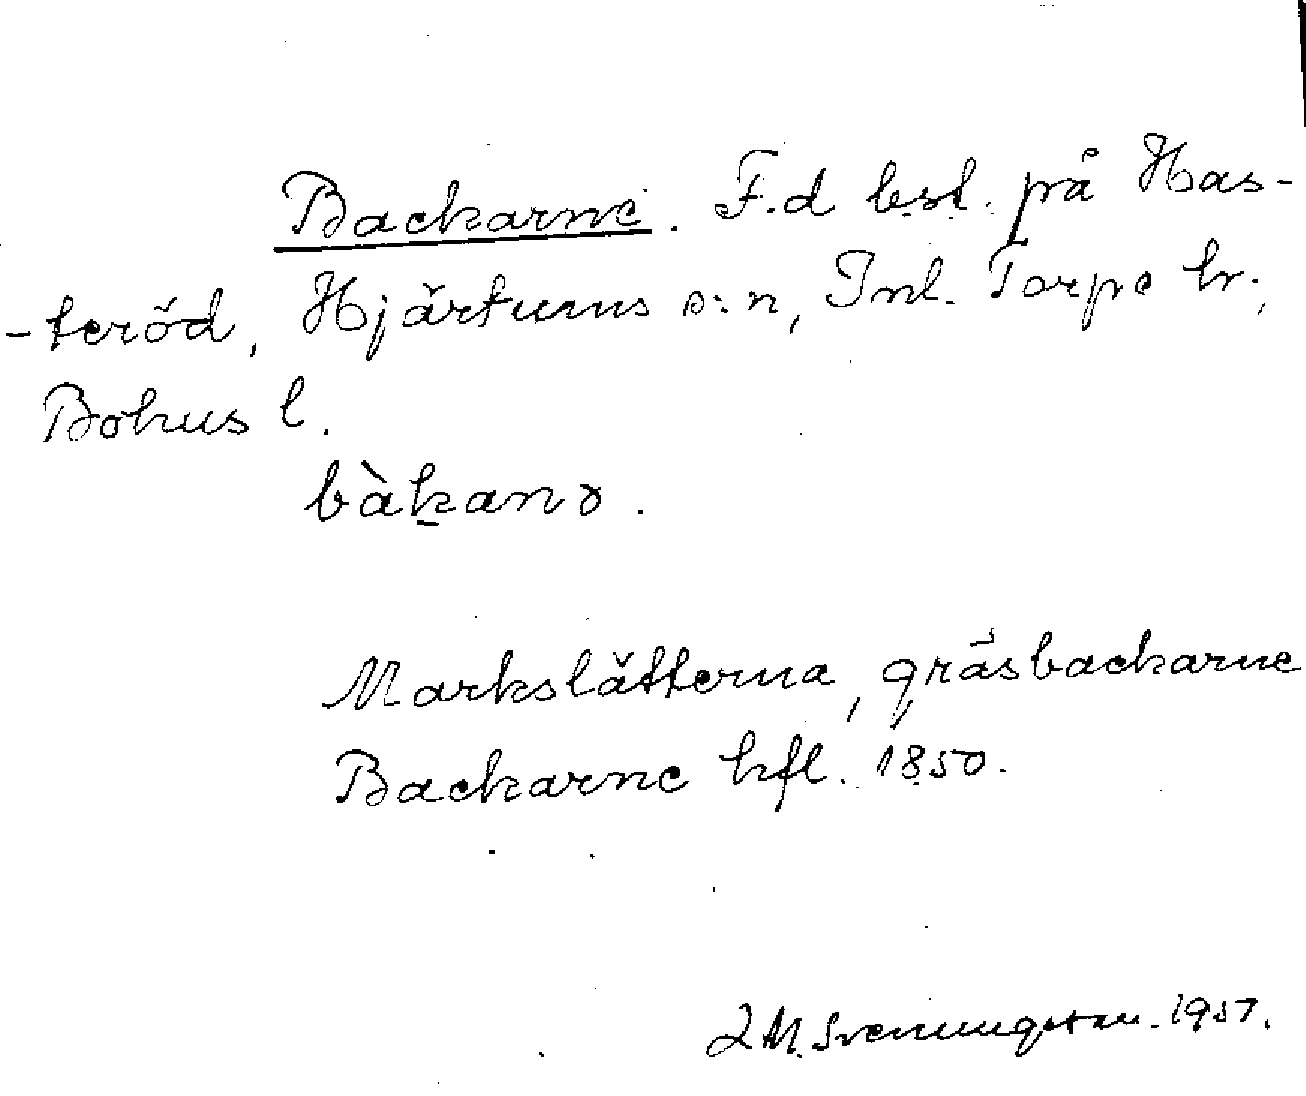 Backarne. F.d bst. på Has-
-teröd, Hjärtums s:n, Inl. Torpe hr.,
Bohus l.
bàk̠anə.
Markslätterna, gräsbackarne
Backarne kfl. 1850.
M. Svenungsson. 1957.